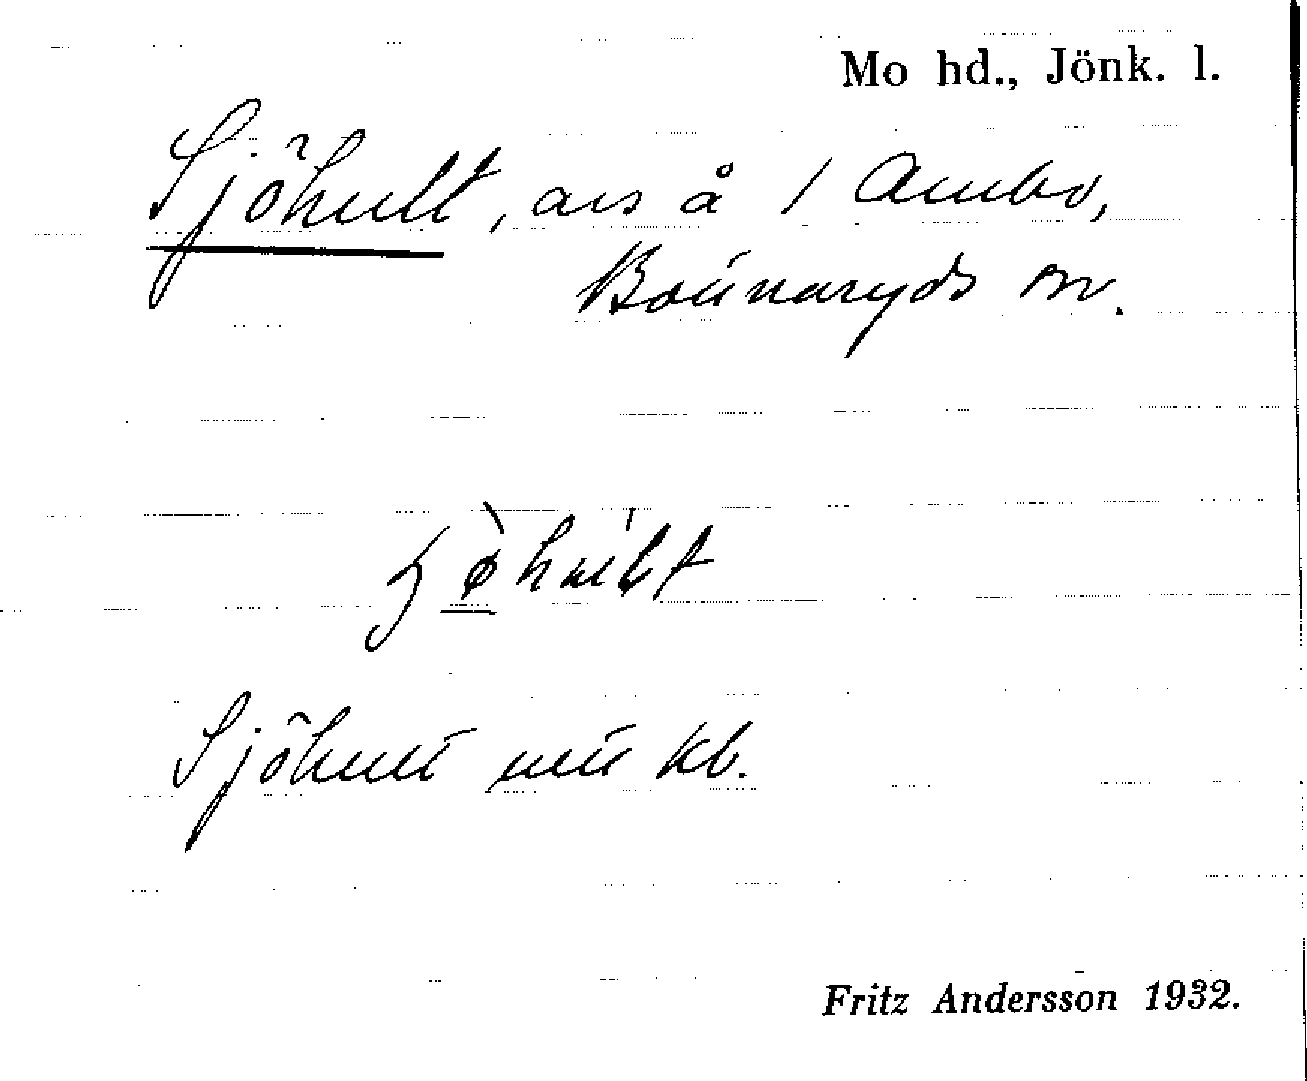 Mo hd., Jönk. l.
Sjöhult, avs å 1 Ambo,
Bottnaryds sn.
Sjöhult utt kb.
Fritz Andersson 1932.